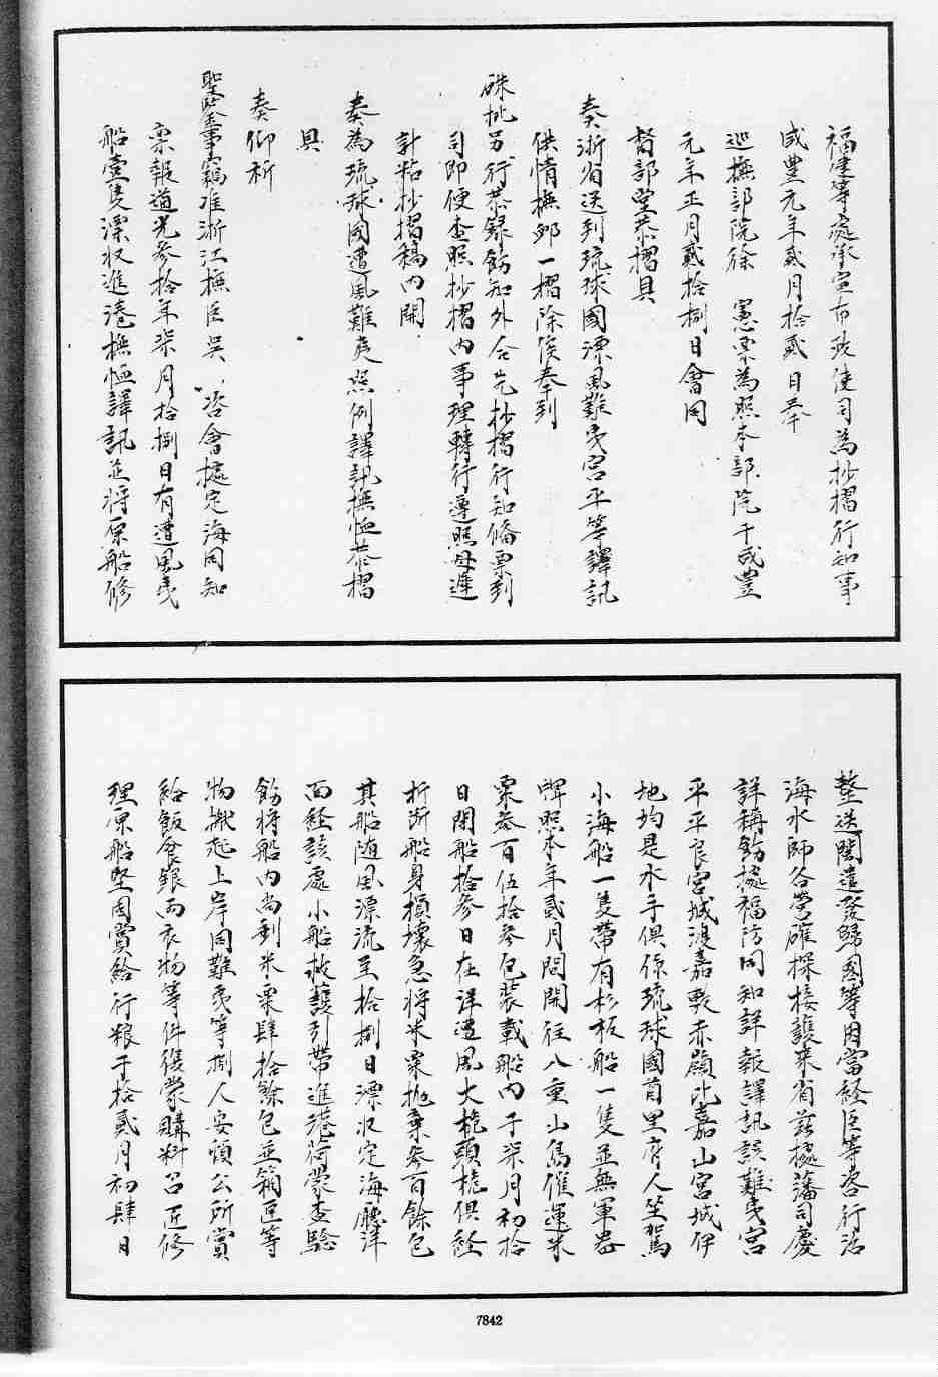 福建等處承宣布政使司為抄摺行知事
咸豐元年貳月拾貳日奉
巡撫部院徐　憲票為照本部院于咸豐
元年正月貳拾捌日會同
督部堂恭摺具
奏浙省送到琉球國漂風難夷宮平等譯訊
供情撫卹一摺除俟奉到
硃批另行恭錄飭知外合先抄摺行知備票到
司即便查照抄摺內事理轉行遵照毋違
計粘抄摺稿內開
奏為琉球國遭風難夷照例譯訊撫恤恭摺
具
奏仰祈
聖鑒事竊准浙江撫臣吳　咨會據定海同知
稟報道光參拾年柒月拾捌日有遭風夷
船壹隻漂收進港撫恤譯訊並將原船修
整送閩遣發歸國等因當經臣等咨行沿
海水師各營確探接護來省茲據藩司慶
詳稱飭據福防同知詳報譯訊該難夷宮
平平良宮城渡嘉敷赤嶺比嘉山宮城伊
地均是水手俱係琉球國首里府人坐駕
小海船一隻帶有杉板船一隻並無軍器
牌照本年貳月間開往八重山島催運米
粟參百伍拾參包裝載船內于柒月初拾
日開船拾參日在洋遭風大桅頭桅俱經
折斷船身損壞急將米粟拋棄參百餘包
其船隨風漂流至拾捌日漂收定海廳洋
面經該處小船救護引帶進港荷蒙查驗
飭將船內尚剩米粟肆拾餘包並箱匣等
物搬起上岸同難夷等捌人安頓公所賞
給飯食銀兩衣物等件復蒙購料召匠修
理原船堅固賞給行糧于拾貳月初肆日
7842